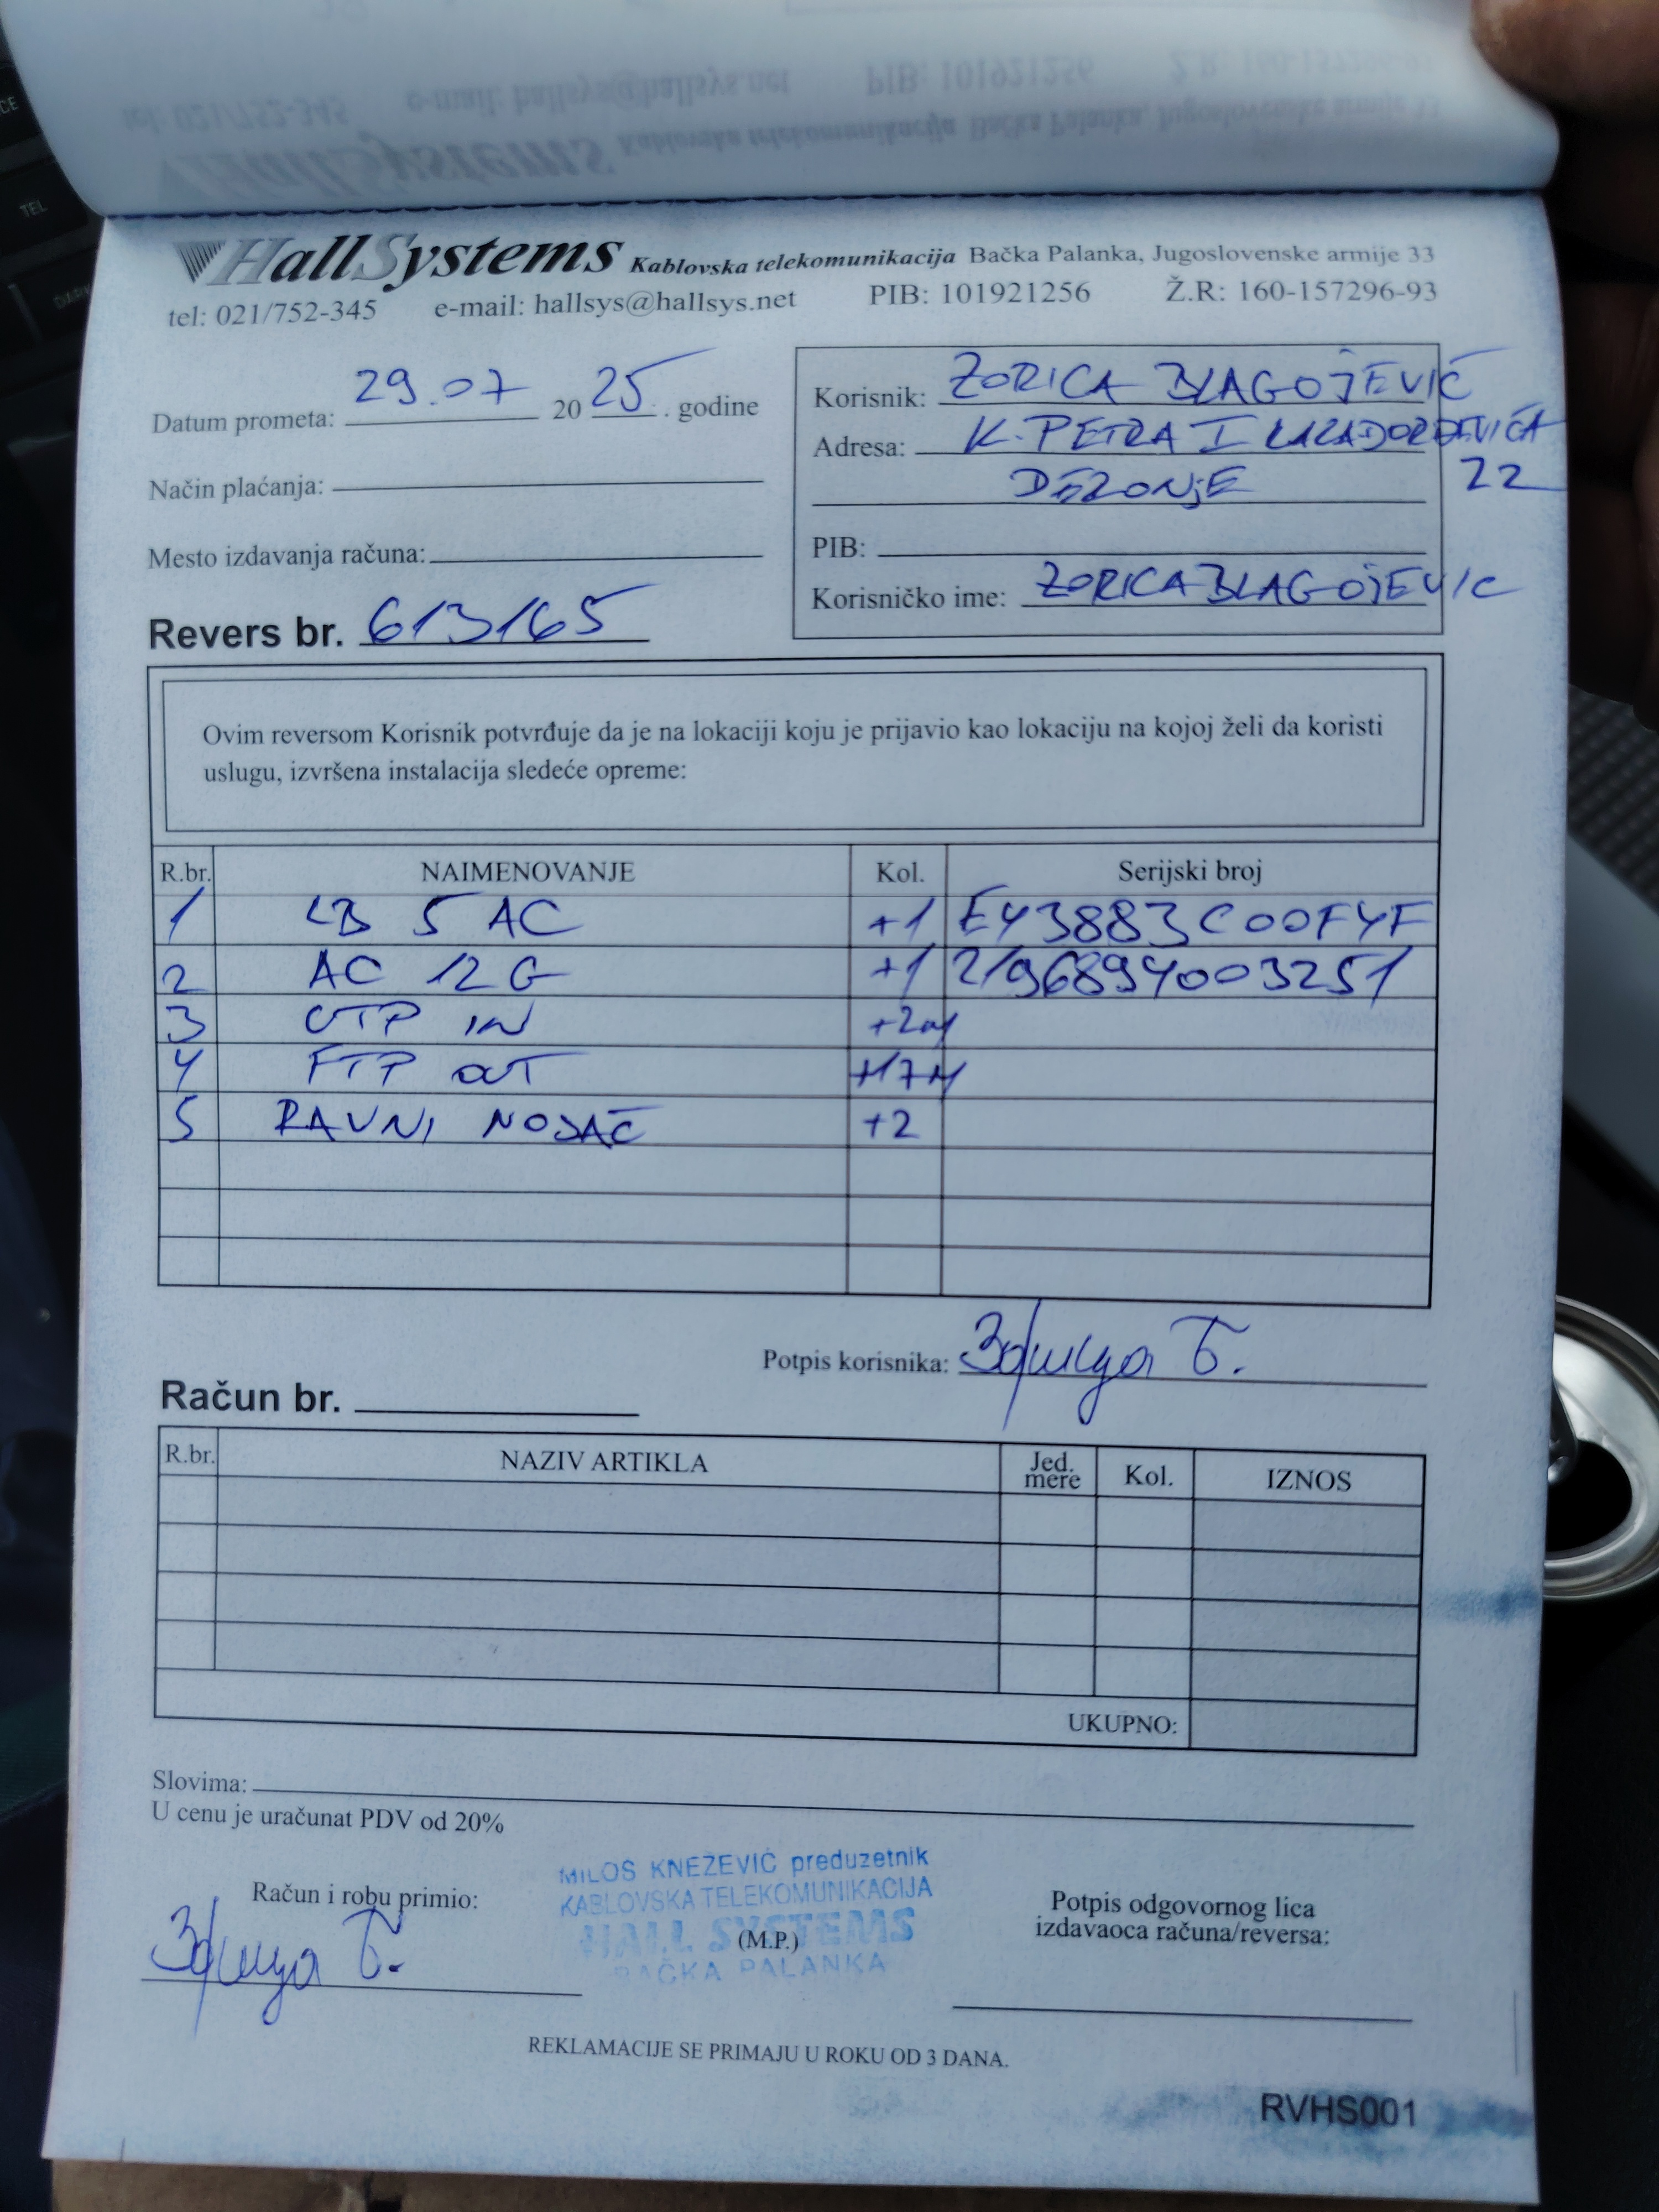 HallSystems Kablovska telekomunikacija Bačka Palanka, Jugoslovenske armije 33
tel: 021/752-345 e-mail: hallsys@hallsys.net PIB: 101921256 Ž.R: 160-157296-93
Datum prometa: 29.07 2025. godine
Način plaćanja:
Mesto izdavanja računa:
Revers br. 613165
Korisnik: ZORICA BLAGOJEVIĆ
Adresa: K. PETRA I KARAĐORĐEVIĆA
DERONJE 22
PIB:
Korisničko ime: ZORICABLAGOJEVIC
Ovim reversom Korisnik potvrđuje da je na lokaciji koju je prijavio kao lokaciju na kojoj želi da koristi
uslugu, izvršena instalacija sledeće opreme:
R.br. NAIMENOVANJE Kol. Serijski broj
1 LB 5 AC +1 E43883C00F4F
2 AC 12 G +1 2196894003251
3 UTP IN +2M
4 FTP OUT +17M
5 RAVNI NOSAČ +2
Potpis korisnika: Зорица Б.
Račun br.
R.br. NAZIV ARTIKLA Jed. mere Kol. IZNOS
UKUPNO:
Slovima:
U cenu je uračunat PDV od 20%
MILOŠ KNEŽEVIĆ preduzetnik
KABLOVSKA TELEKOMUNIKACIJA
HALL SYSTEMS
BAČKA PALANKA
Račun i robu primio:
Зорица Б.
(M.P.)
Potpis odgovornog lica
izdavaoca računa/reversa:
REKLAMACIJE SE PRIMAJU U ROKU OD 3 DANA.
RVHS001